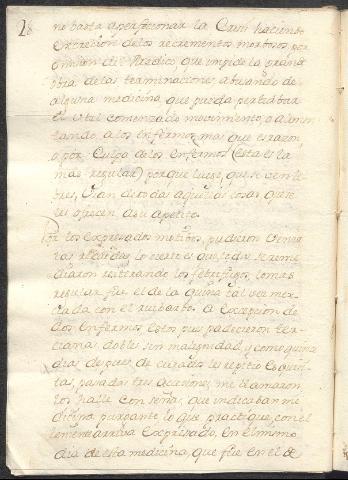 28
no basta a perfecionar la Crisi haciendo
excrecion de los recrementos morbosos, por
omision del Medico, que impide la grande
obra de las terminaciones, abusando de
alguna medicina, que pueda perturbar
el util comenzado movimiento, o alimen
tando a los enfermos mas que es razon,
o por Culpa de los enfermos (esta es la
mas regular) porque luego, que se ven li-
bres, Usan de todas aquellas cosas que
les ofrecen a su apetito.
Por los expresados motibos, pudieron venir
las recaidas, lo cierto es que todas se reme
diaron reiterando los febrifugos, lo mas
regular fue el de la quina tal vez mez
clada con el ruibarbo. A excepcion de
dos enfermos, estos pues padecieron ter-
cianas dobles sin malignidad, y como quince
dias despues de curados les repitio es quin-
tas, pasadas tres acciones, me llamaron
los halle con señas, que indicaban me
dicina purgante lo que practique, con el
lemente arriva expresado, en el mismo
dia de esta medicina, que fue en el de